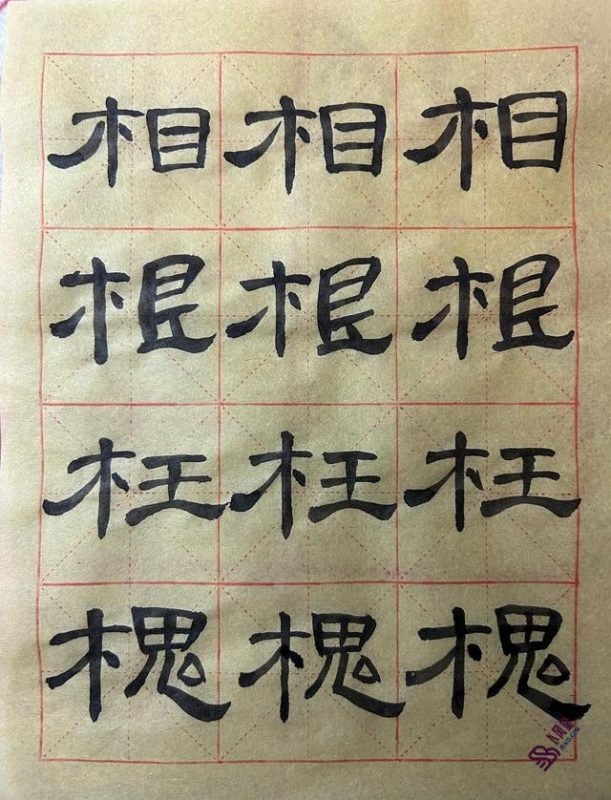 相相相
根根根
枉枉枉
槐槐槐